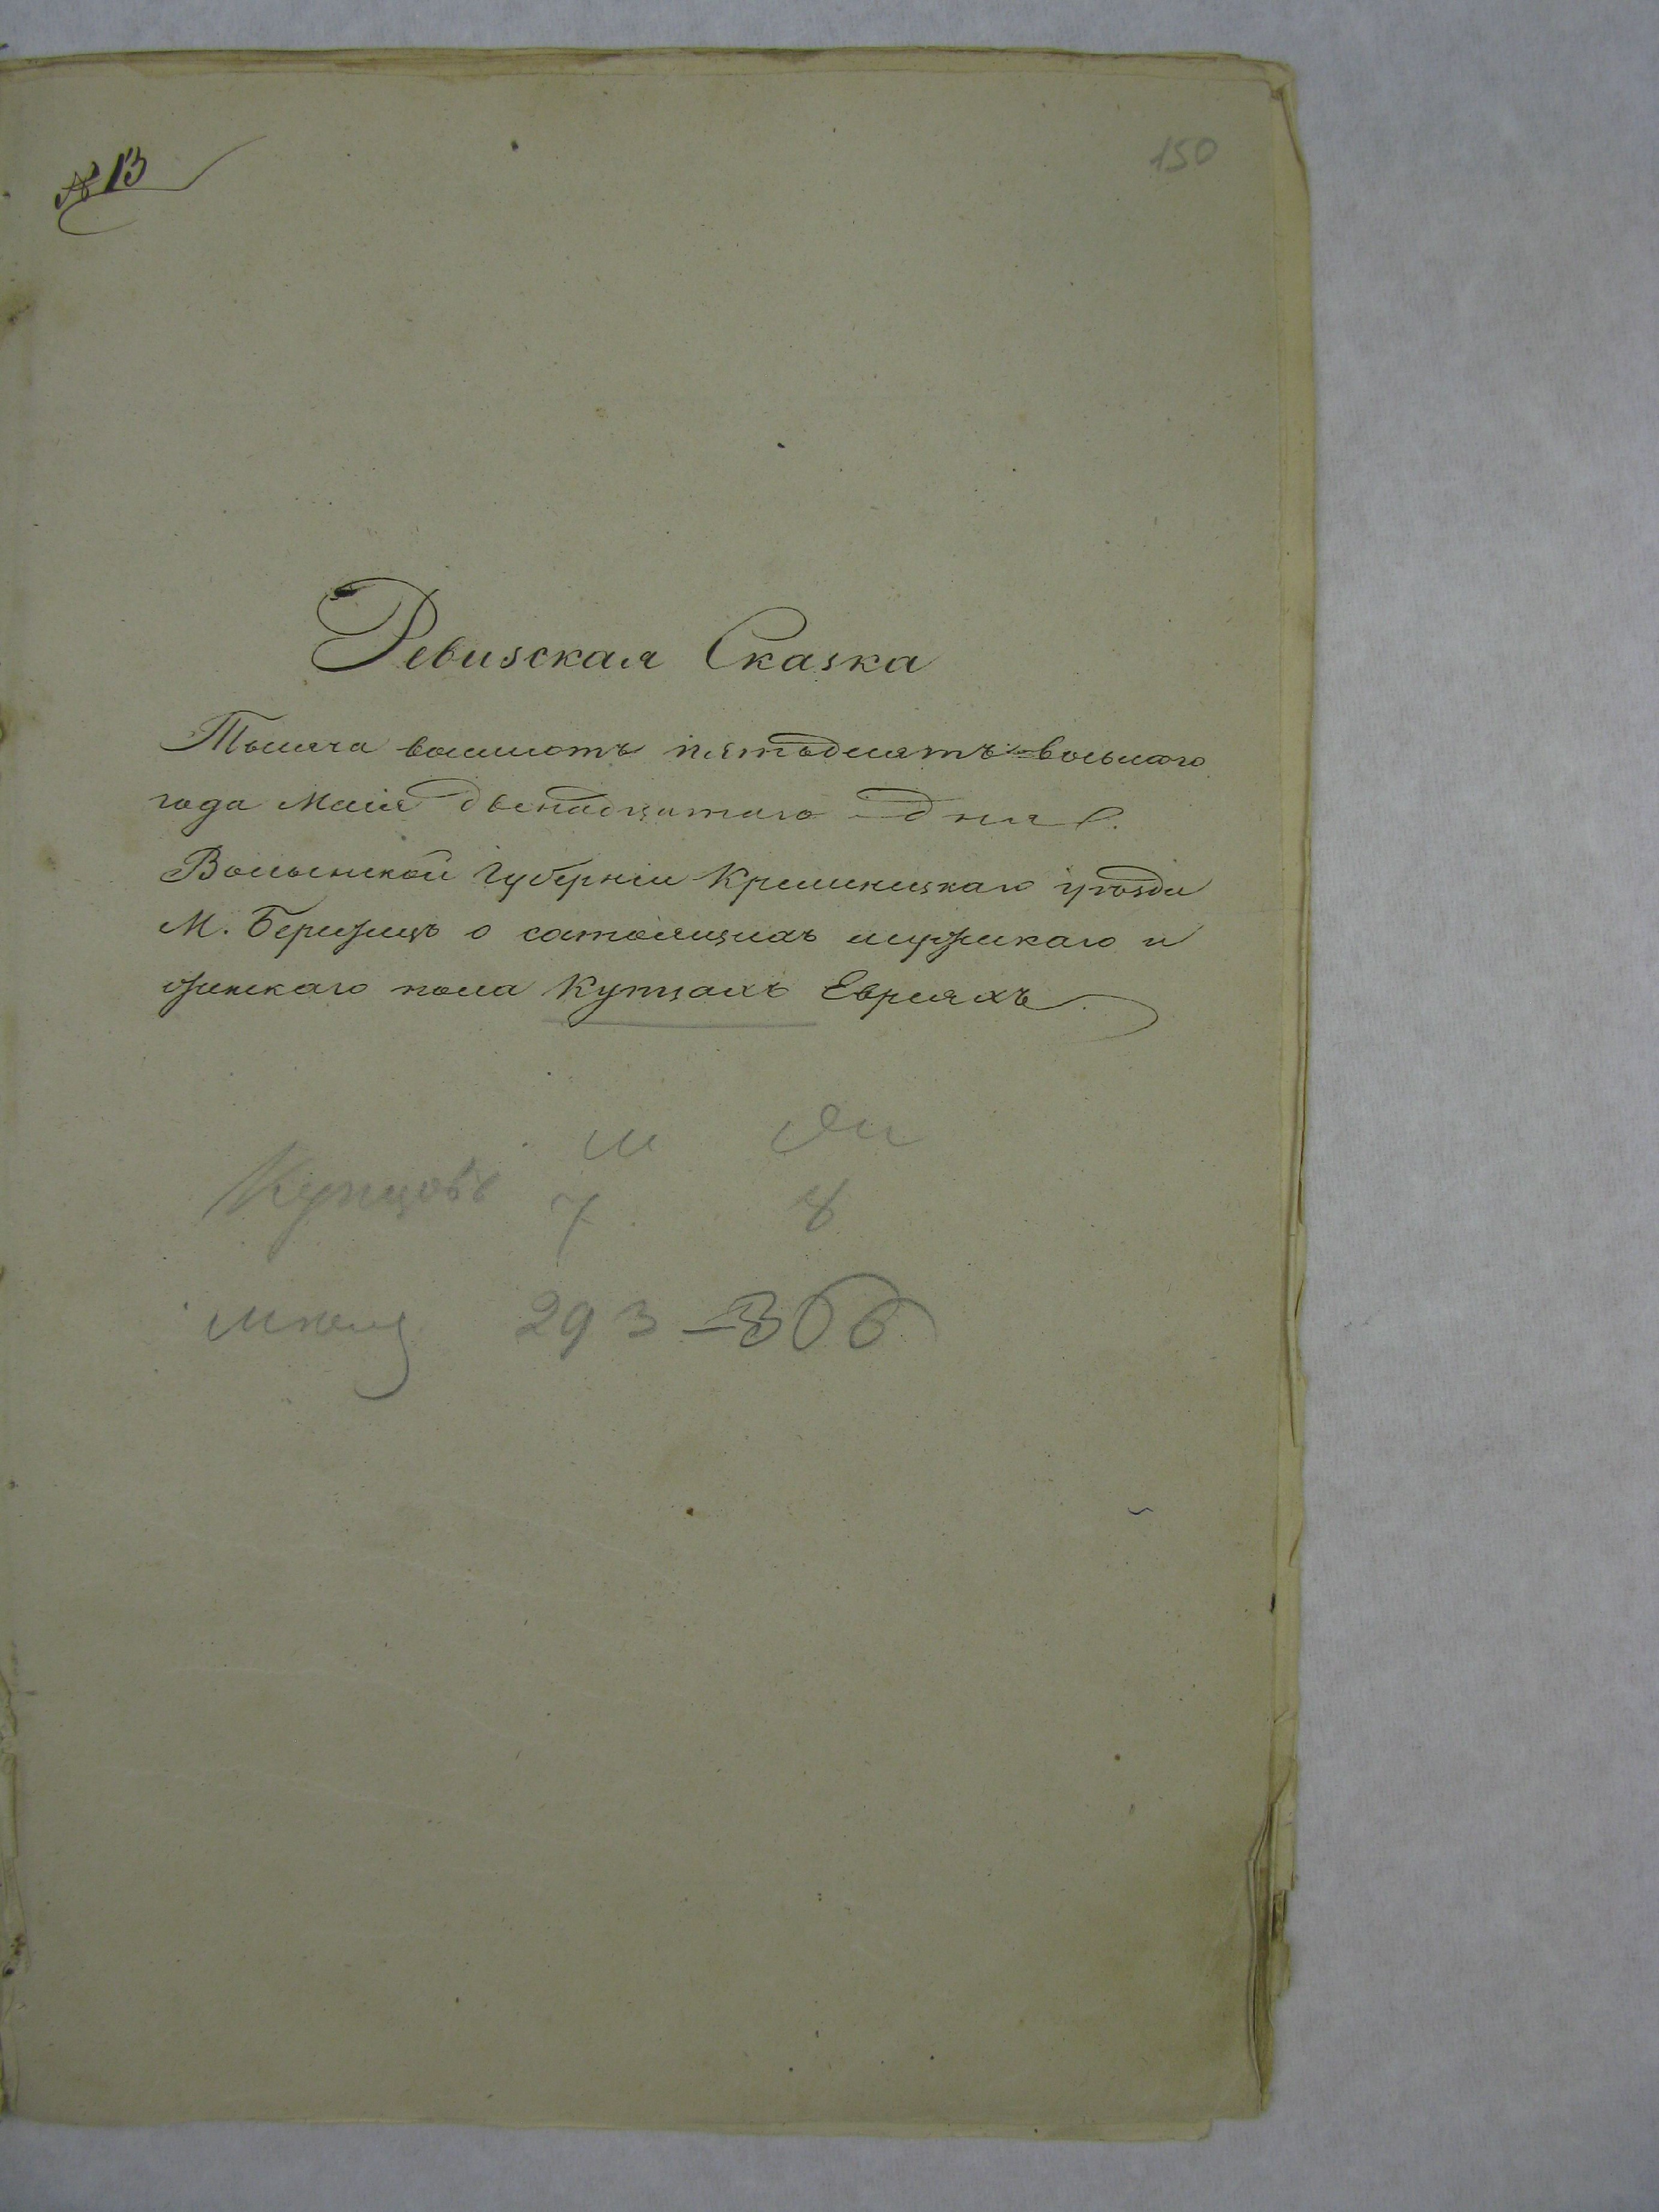 № 13
150
Ревизская Сказка
Тысяча восмсотъ пятьдесятъ восьмаго
года Маія двенадцатаго дня.
Волынской Губерніи Кременецкаго уѣзда
М. Бережецъ о состоящихъ мужескаго и
женскаго пола Купцахъ Евреяхъ.
м же
Купцовъ 7 8
293 306